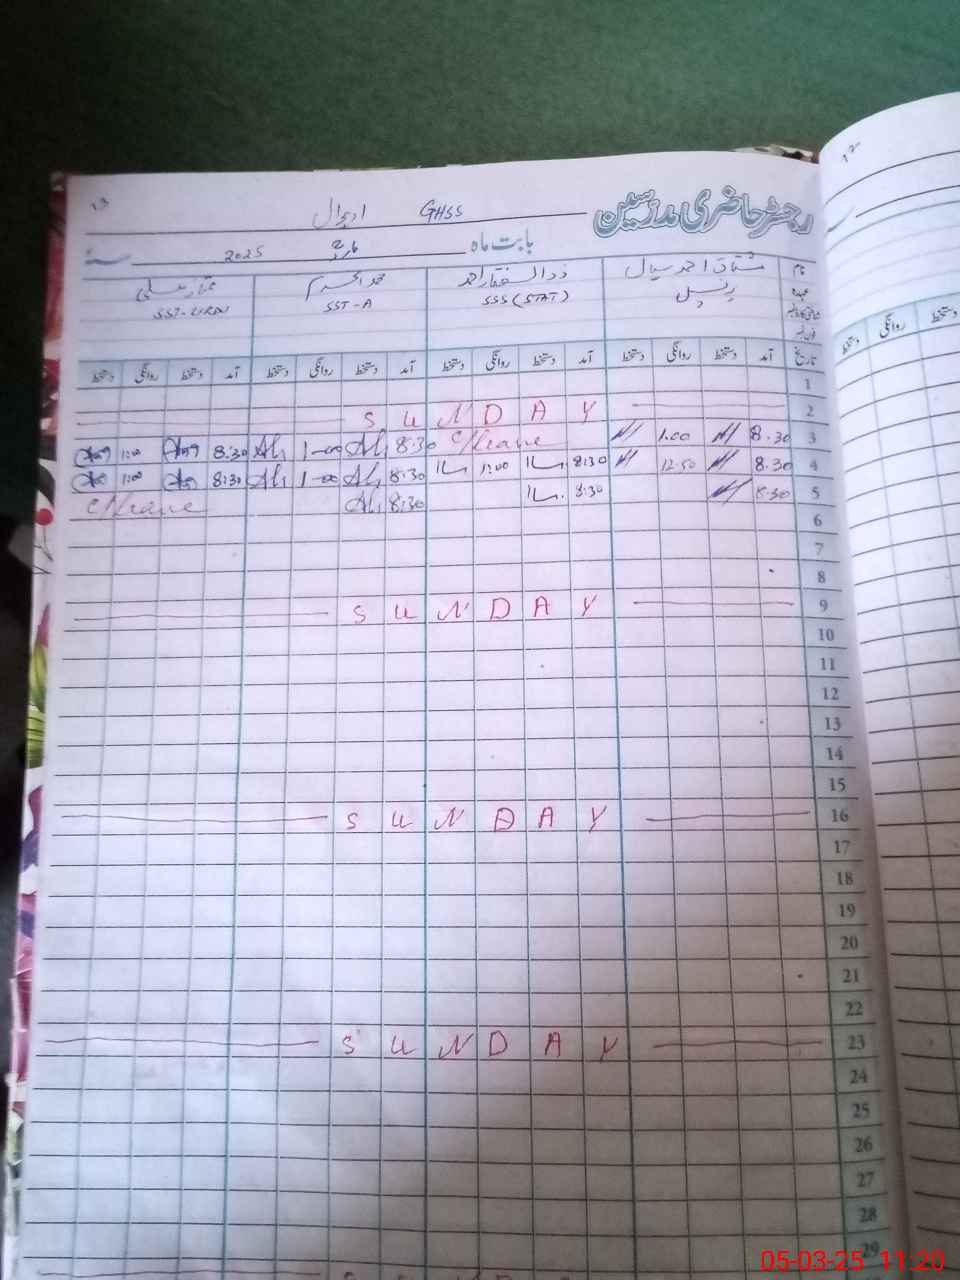 رجسٹر حاضری مدرسین
GHSS
بابت ماہ مارچ 2025ء
نام مشتاق احمد سیال ذوالفقار احمد محمد اکرم
عہدہ پرنسپل SSS (STAT) SST-A SST-URDU
تاریخ آمد دستخط روانگی دستخط آمد دستخط روانگی دستخط آمد دستخط روانگی دستخط آمد دستخط روانگی دستخط
1
2 S U N D A Y
3 8.30 1.00 C/leave 8:30 1-00 8:30 1:00
4 8.30 12.50 8:30 1:00 8:30 1-00 8:30 1:00
5 8.30 8:30 8:30 C/leave
6
7
8
9 S U N D A Y
10
11
12
13
14
15
16 S U N D A Y
17
18
19
20
21
22
23 S U N D A Y
24
25
26
27
28
29
روانگی دستخط
05-03-25 11:20